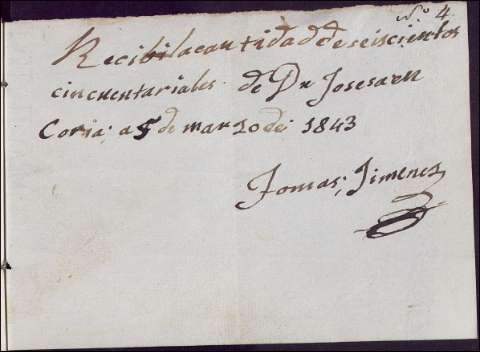 Nº 4
Recibi la cantidad de seiscientos
cincuenta riales de Dn Jose
Coria; a 5 de marzo de 1843
Tomas; Jimenez